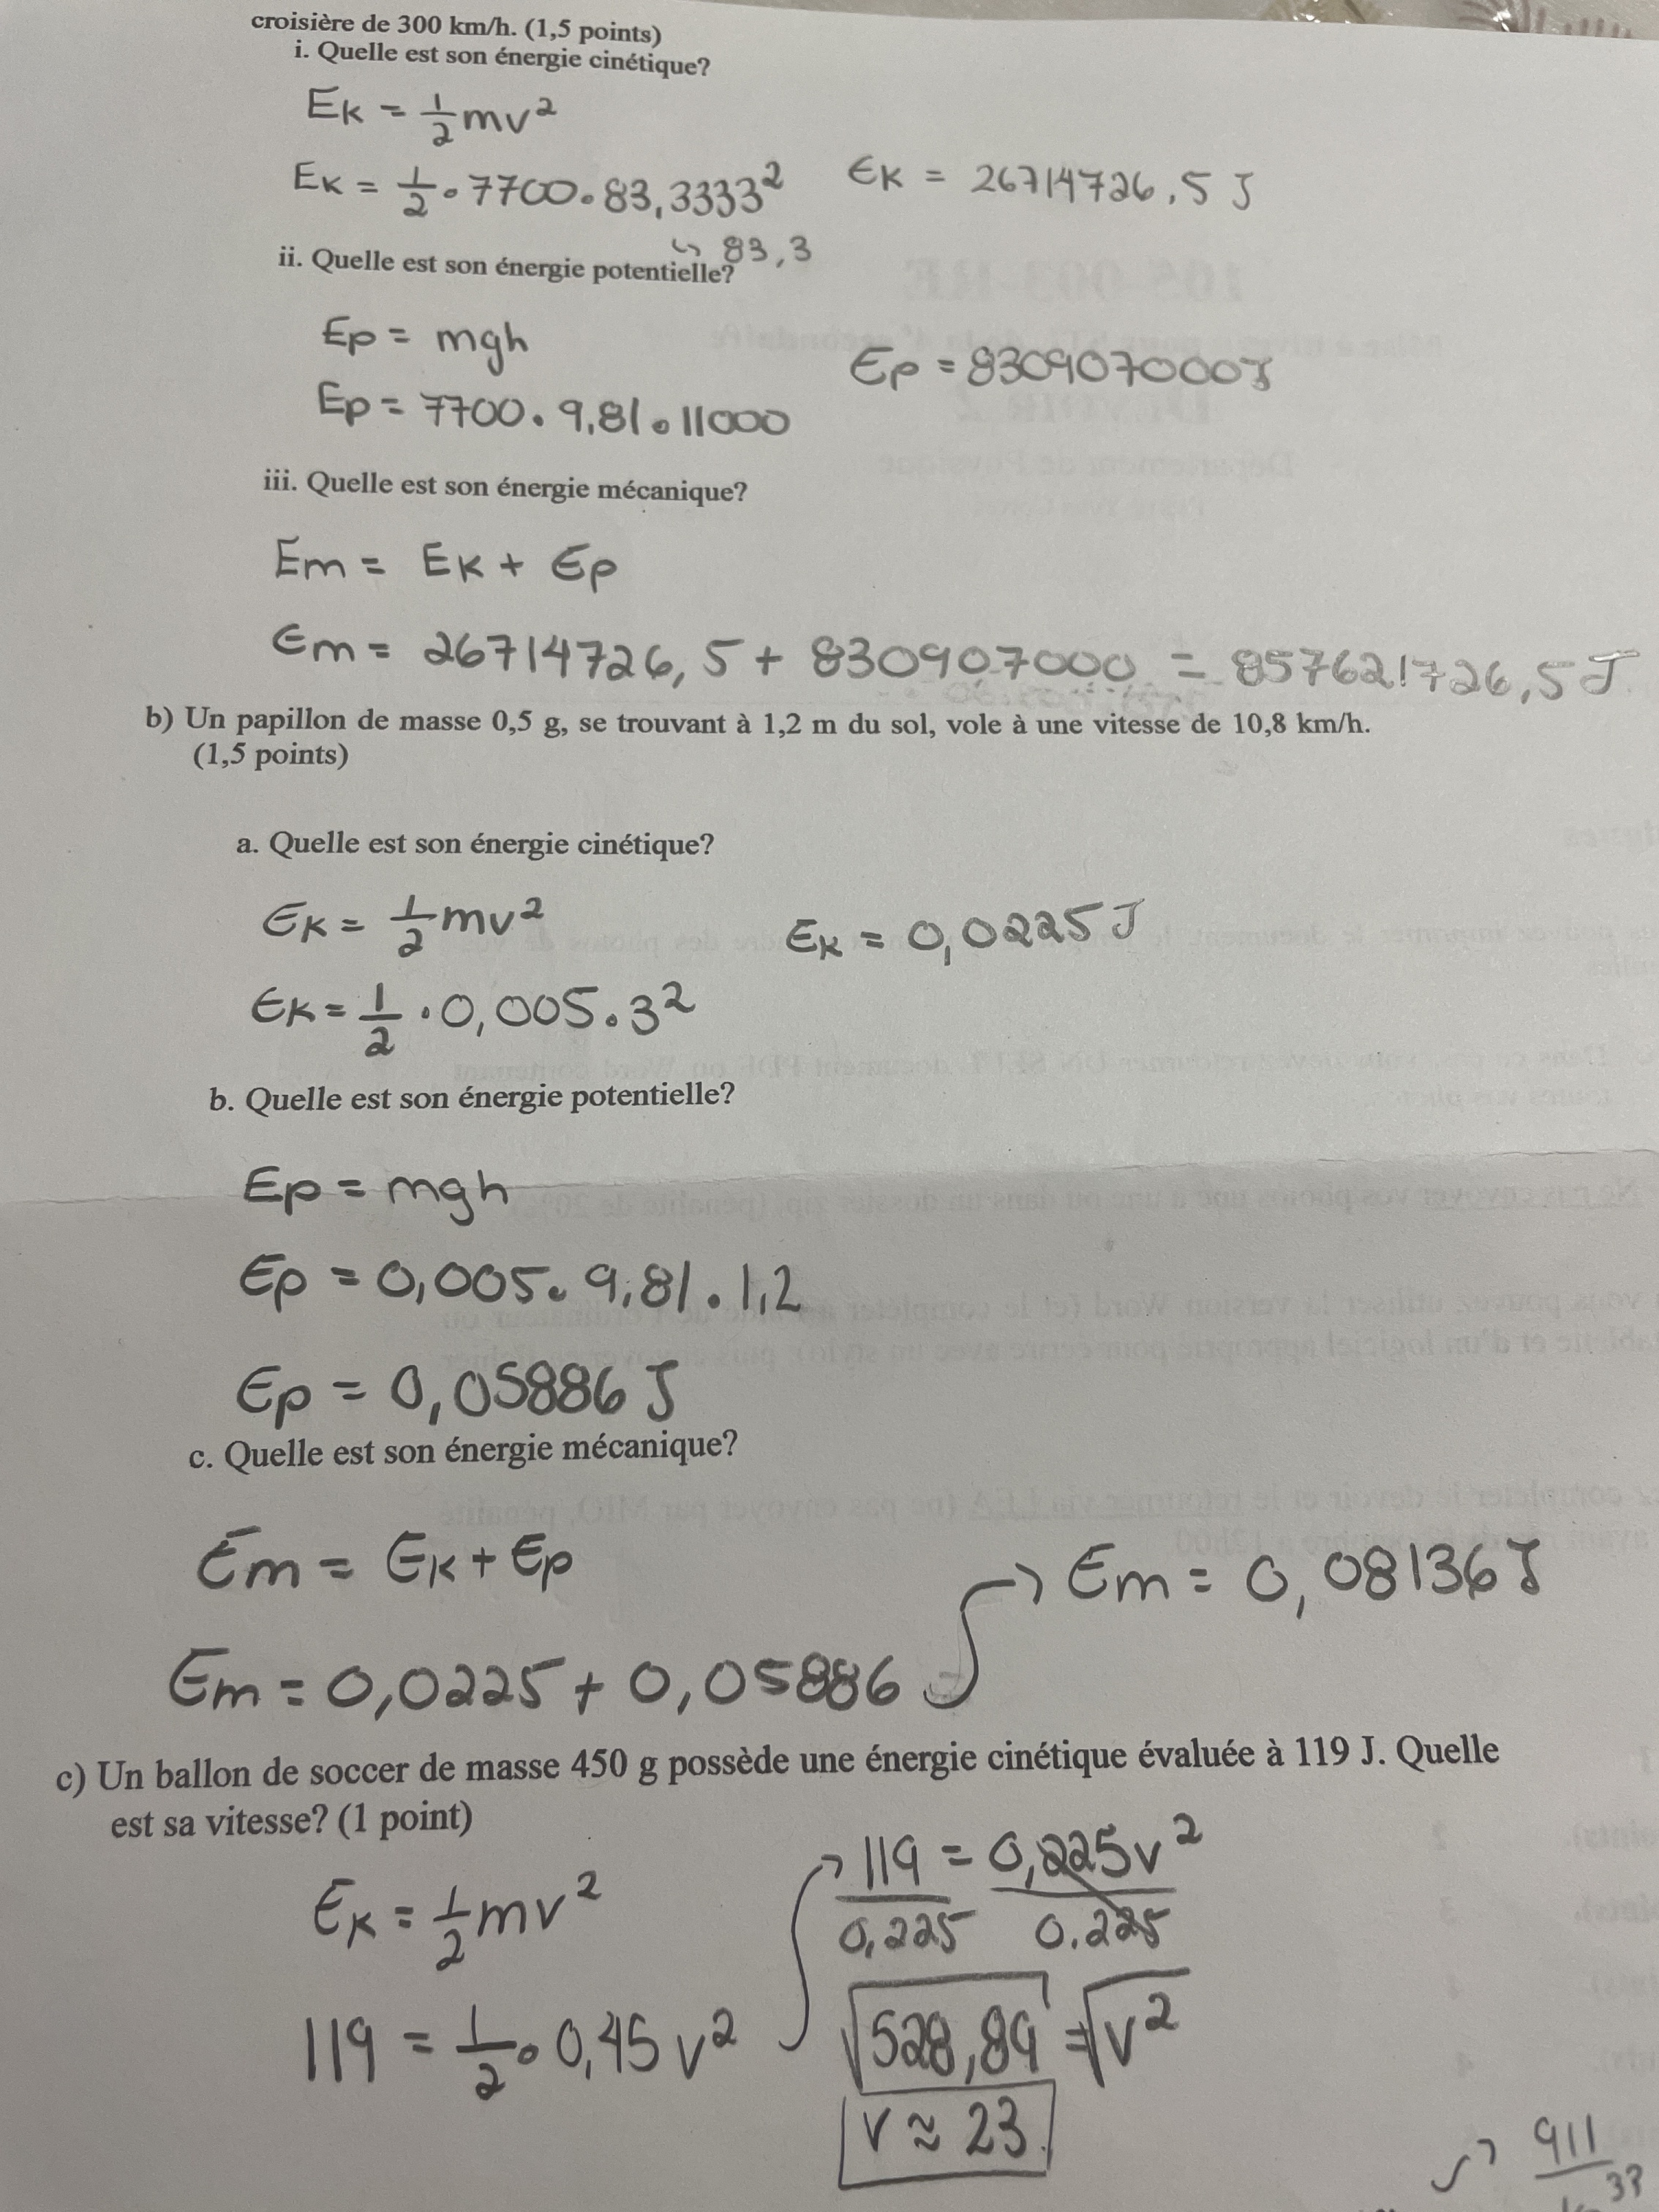 croisière de 300 km/h. (1,5 points)
i. Quelle est son énergie cinétique?
Ek = 1/2 mv²
Ek = 1/2 • 7700 • 83,3333² Ek = 26714726,5 J
↳ 83,3
ii. Quelle est son énergie potentielle?
Ep = mgh
Ep = 830907000J
Ep = 7700 • 9,81 • 11000
iii. Quelle est son énergie mécanique?
Em = Ek + Ep
Em = 26714726,5 + 830907000 = 857621726,5 J
b) Un papillon de masse 0,5 g, se trouvant à 1,2 m du sol, vole à une vitesse de 10,8 km/h.
(1,5 points)
a. Quelle est son énergie cinétique?
Ek = 1/2 mv² Ek = 0,0225 J
Ek = 1/2 • 0,005 • 3²
b. Quelle est son énergie potentielle?
Ep = mgh
Ep = 0,005 • 9,81 • 1,2
Ep = 0,05886 J
c. Quelle est son énergie mécanique?
Em = Ek + Ep → Em = 0,08136 J
Em = 0,0225 + 0,05886
c) Un ballon de soccer de masse 450 g possède une énergie cinétique évaluée à 119 J. Quelle
est sa vitesse? (1 point)
→ 119 = 0,225v²
0,225 0.225
Ek = 1/2 mv²
119 = 1/2 • 0,45 v² √528,89 = √v²
v ≈ 23
911